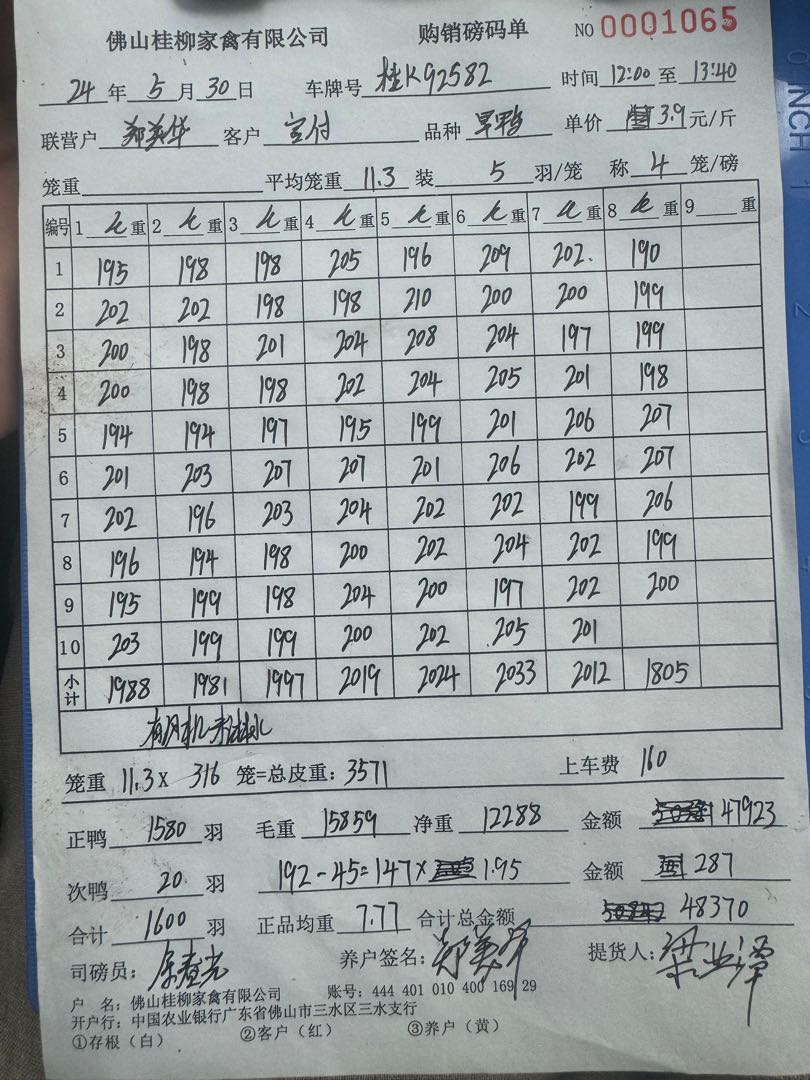 佛山桂柳家禽有限公司 购销磅码单 NO 0001065
24 年 5 月 30 日 车牌号 桂K92582 时间 12:00 至 13:40
联营户 郑美华 客户 宝付 品种 旱鸭 单价 3.9 元/斤
笼重 平均笼重 11.3 装 5 羽/笼 称 4 笼/磅
编号 1 毛 重 2 毛 重 3 毛 重 4 毛 重 5 毛 重 6 毛 重 7 毛 重 8 毛 重 9 重
1 195 198 198 205 196 209 202. 190
2 202 202 198 198 210 200 200 199
3 200 198 201 204 208 204 197 199
4 200 198 198 202 204 205 201 198
5 194 194 197 195 199 201 206 207
6 201 203 207 207 201 206 202 207
7 202 196 203 204 202 202 199 206
8 196 194 198 200 202 204 202 199
9 195 199 198 204 200 197 202 200
10 203 199 199 200 202 205 201
小计 1988 1981 1997 2019 2024 2033 2012 1805
笼重 11.3 X 316 笼=总皮重: 3571 上车费 160
正鸭 1580 羽 毛重 15859 净重 12288 金额 47923
次鸭 20 羽 192-45=147× 1.95 金额 287
合计 1600 羽 正品均重 7.77 合计总金额 48370
司磅员: 养户签名: 郑美华 提货人:
户 名: 佛山桂柳家禽有限公司 账号: 444 401 010 400 169 29
开户行: 中国农业银行广东省佛山市三水区三水支行
①存根(白) ②客户(红) ③养户(黄)
INCH 1
2
3